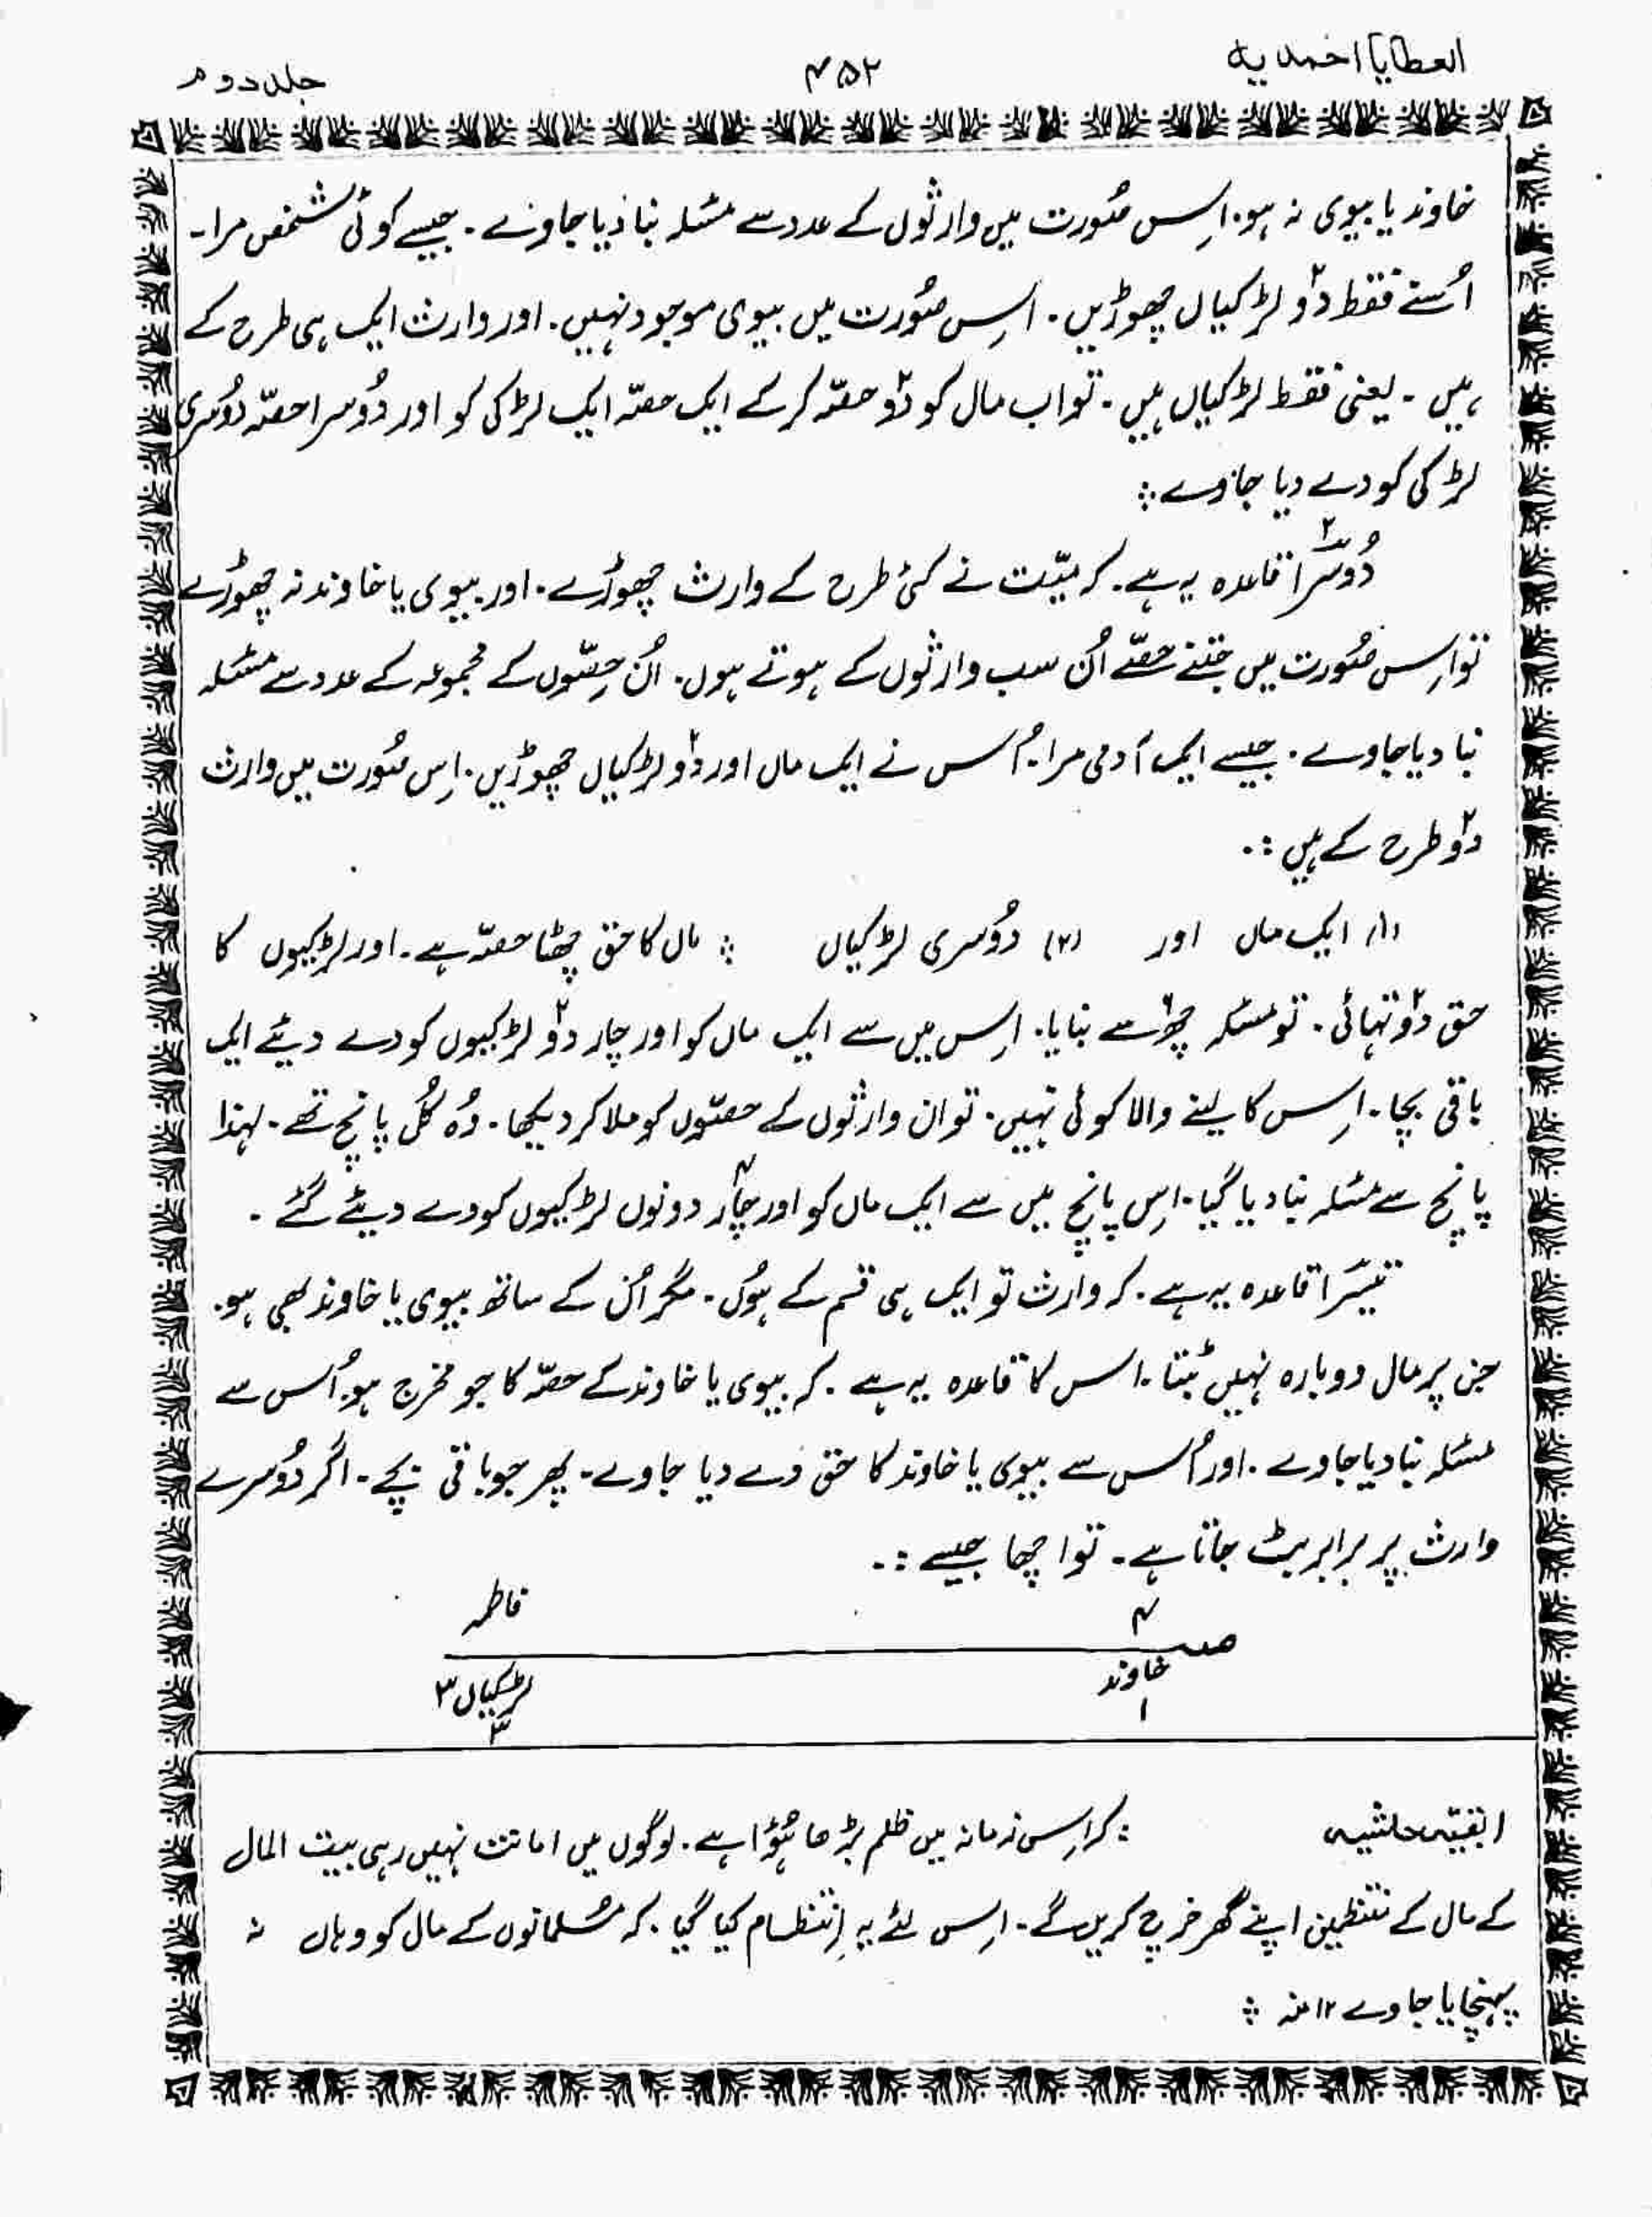 العطایا احمدیه ۴۵۲ جلد دوم
خاوند یا بیوی نہ ہو۔ اِس صُورت میں وارثوں کے عدد سے مسئلہ بنا دیا جاوے۔ جیسے کوئی شخص مرا۔
اُسنے فقط دو۲ لڑکیاں چھوڑیں۔ اِس صُورت میں بیوی موجود نہیں۔ اور وارث ایک ہی طرح کے
ہیں۔ یعنی فقط لڑکیاں ہیں۔ تو اب مال کو دو۲ حصّہ کر کے ایک حصّہ ایک لڑکی کو اور دُوسرا حصّہ دُوسری
لڑکی کو دے دیا جاوے ؞
دُوسرا۲ قاعدہ یہ ہے۔ کہ میّت نے کئی طرح کے وارث چھوڑے۔ اور بیوی یا خاوند نہ چھوڑے
تو اِس صُورت میں جتنے حصّے اُن سب وارثوں کے ہوتے ہوں۔ اُن حِصّوں کے مجموعہ کے عدد سے مسئلہ
بنا دیا جاوے۔ جیسے ایک آدمی مرا۔ اُس نے ایک ماں اور دو۲ لڑکیاں چھوڑیں۔ اِس صُورت میں وارث
دو۲ طرح کے ہیں :۔
(۱) ایک ماں اور (۲) دُوسری لڑکیاں ؞ ماں کا حق چھٹا حصّہ ہے۔ اور لڑکیوں کا
حق دو۲ تہائی۔ تو مسئلہ چھ۶ سے بنایا۔ اِس میں سے ایک ماں کو اور چار دو۲ لڑکیوں کو دے دیئے ایک
باقی بچا۔ اِس کا لینے والا کوئی نہیں۔ تو ان وارثوں کے حصّوں کو ملا کر دیکھا۔ وُہ کُل پانچ تھے۔ لہٰذا
پانچ سے مسئلہ بنا دیا گیا۔ اِس پانچ میں سے ایک ماں کو اور چار۴ دونوں لڑکیوں کو دے دیئے گئے۔
تیسرا قاعدہ یہ ہے۔ کہ وارث تو ایک ہی قسم کے ہُوں۔ مگر اُن کے ساتھ بیوی یا خاوند بھی ہو۔
جن پر مال دوبارہ نہیں بٹتا۔ اس کا قاعدہ یہ ہے۔ کہ بیوی یا خاوند کے حصّہ کا جو مخرج ہو۔ اُس سے
مسئلہ بنا دیا جاوے۔ اور اُس سے بیوی یا خاوند کا حق دے دیا جاوے۔ پھر جو باقی بچے۔ اگر دُوسرے
وارث پر برابر بٹ جاتا ہے۔ تو اچھا جیسے :۔
۴ فاطمہ
خاوند لڑکیاں ۳
۱ ۳
(بقیّہ حاشیہ : کہ اِس زمانہ میں ظلم بڑھا ہُوا ہے۔ لوگوں میں امانت نہیں رہی بیت المال
کے مال کے منتظمین اپنے گھر خرچ کریں گے۔ اِس لئے یہ اِنتظام کیا گیا۔ کہ مُسلمانوں کے مال کو وہاں نہ
پہنچایا جاوے ۱۲ منہ ؞